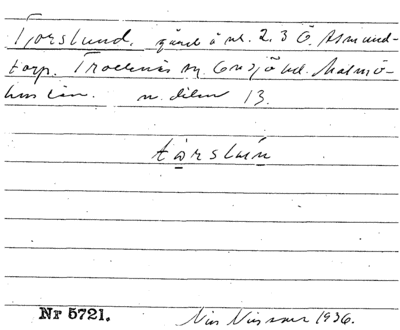 Torslund. gård å nr. 2, 3 Ö. Asmund-
torp. Trollenäs sn, Onsjö hd. Malmö-
hus län. n. delen 13.
tòrsluǹ
Nr 5721.
Nils Nilsson 1936.